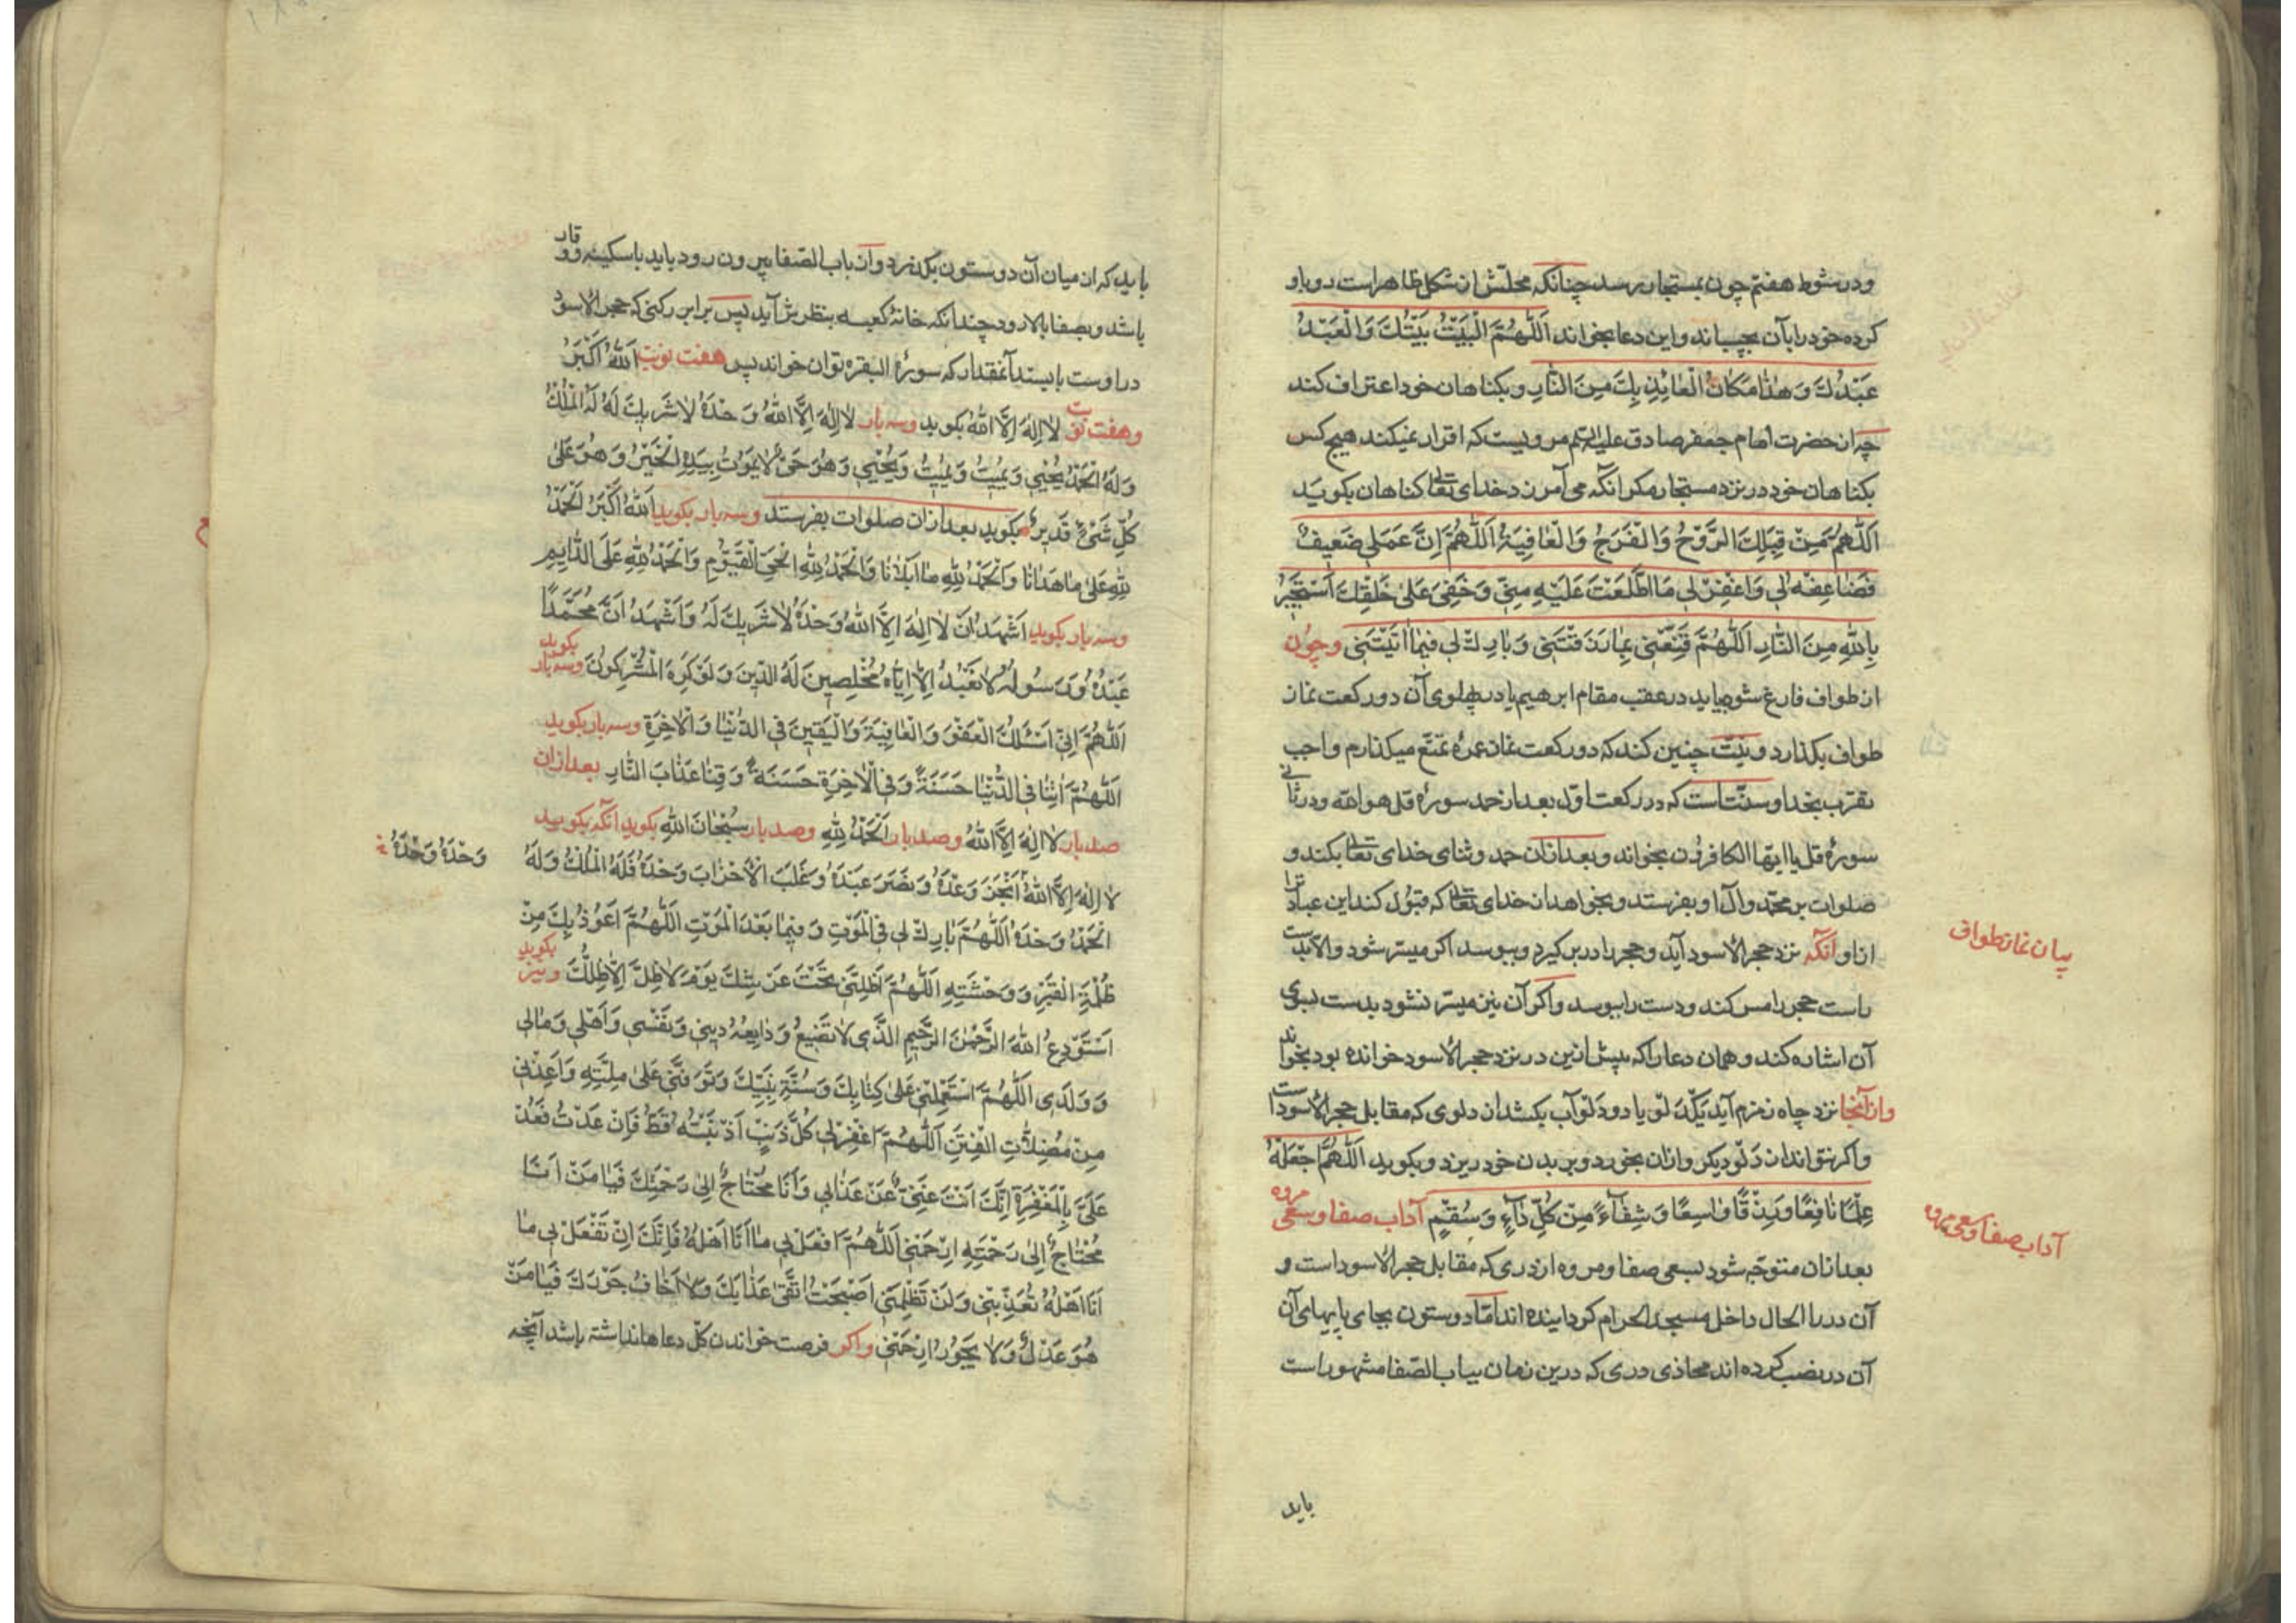 ودر شوط هفتم چون بمستجار برسد چنانکه محلّش از شکل ظاهر است رو باو
کرده خود را بآن بچسباند واین دعا بخواند اَللّٰهُمَّ الْبَیْتُ بَیْتُكَ وَالْعَبْدُ
عَبْدُكَ وَهٰذا مَکانُ الْعائِذِ بِكَ مِنَ النّارِ وبکناهان خود اعتراف کند
چه از حضرت امام جعفر صادق علیه السّلم مرویست که اقرار نمیکند هیچ کس
بکناهان خود در نزد مستجار مکر آنکه می آمرزد خدای تعالی کناهان بکوید
اَللّٰهُمَّ مِنْ قِبَلِكَ الرَّوْحُ وَالْفَرَجُ وَالْعافِیَةُ اَللّٰهُمَّ اِنَّ عَمَلی ضَعیفٌ
فَضاعِفْهُ لی وَاغْفِرْ لی مَا اطَّلَعْتَ عَلَیْهِ مِنّی وَخَفِیَ عَلیٰ خَلْقِكَ اَسْتَجیرُ
بِاللّٰهِ مِنَ النّارِ اَللّٰهُمَّ قَنِّعْنی بِما رَزَقْتَنی وَبارِكْ لی فیما اٰتَیْتَنی وچون
از طواف فارغ شود بیاید در عقب مقام ابرهیم یا در پهلوی آن دو رکعت نماز
طواف بکذارد ونیّت چنین کند که دو رکعت نماز عمرهٔ تمتّع میکذارم واجب
تقرّب بخدا وسنّتست که در رکعت اوّل بعد از حمد سورهٔ قل هو الله ودر ثانی
سورهٔ قل یا ایّها الکافرون بخواند وبعد از آن حمد وثنای خدای تعالی بکند و
صلوات بر محمّد وآل او بفرستد وبخواهد از خدای تعالی که قبول کند این عبادترا
از او آنکه نزد حجر الأسود آید وحجر را در بر کیرد وببوسد اکر میسّر شود والّا بدست
راست حجر را مس کند ودست را ببوسد واکر آن نیز میسّر نشود بدست بسوی
آن اشاره کند وهمان دعا را که پیش ازین در نزد حجر الأسود خوانده بود بخواند
واز آنجا نزد چاه زمزم آید یکّ دَلْو یا دو دَلْو آب بکشد از دلوی که مقابل حجر الأسود است
واکر نتواند از دَلْو دیکر واز آن بخورد وبر بدن خود ریزد وبکوید اَللّٰهُمَّ اجْعَلْهُ
عِلْمًا نافِعًا وَرِزْقًا واسِعًا وَشِفآءً مِنْ کُلِّ دآءٍ وَسُقْمٍ آداب صفا وسعی مروه
بعد از آن متوجّه شود بسعی صفا ومروه از دری که مقابل حجر الأسود است و
آن در را الحال داخل مسجد الحرام کردانیده اند امّا دو ستون بجای پایهای آن
آن در نصب کرده اند محاذی دری که درین زمان بباب الصّفا مشهور است
باید
بیان نماز طواف
آداب صفا وسعی مروه
باید که از میان آن دو ستون بکذرد واز باب الصّفا بیرون رود باید با سکینه ووقار
باشد وبصفا بالا رود چندانکه خانهٔ کعبه بنظرش آید پس برابر رکنی که حجر الأسود
در اوست بایستد آنمقدار که سورهٔ البقره توان خواند پس هفت نوبت اَللّٰهُ اَکْبَرُ
وهفت نوبت لا اِلٰهَ اِلَّا اللّٰهُ بکوید وسه بار لا اِلٰهَ اِلَّا اللّٰهُ وَحْدَهُ لا شَریكَ لَهُ لَهُ الْمُلْكُ
وَلَهُ الْحَمْدُ یُحْیی وَیُمیتُ وَیُمیتُ وَیُحْیی وَهُوَ حَیٌّ لا یَمُوتُ بِیَدِهِ الْخَیْرُ وَهُوَ عَلیٰ
کُلِّ شَیْءٍ قَدیرٌ بکوید بعد از آن صلوات بفرستد وسه بار بکوید اَللّٰهُ اَکْبَرُ اَلْحَمْدُ
لِلّٰهِ عَلیٰ ما هَدانا وَالْحَمْدُ لِلّٰهِ ما اَبْلانا وَالْحَمْدُ لِلّٰهِ الْحَیِّ الْقَیُّومِ وَالْحَمْدُ لِلّٰهِ عَلَی الدّایِمِ
وسه بار بکوید اَشْهَدُ اَنْ لا اِلٰهَ اِلَّا اللّٰهُ وَحْدَهُ لا شَریكَ لَهُ وَاَشْهَدُ اَنَّ مُحَمَّدًا
عَبْدُهُ وَرَسُولُهُ لا نَعْبُدُ اِلّا اِیّاهُ مُخْلِصینَ لَهُ الدّینَ وَلَوْ کَرِهَ الْمُشْرِکُونَ وسه بار بکوید
اَللّٰهُمَّ اِنّی اَسْئَلُكَ الْعَفْوَ وَالْعافِیَةَ وَالْیَقینَ فِی الدُّنْیا وَالْاٰخِرَةِ وسه بار بکوید
اَللّٰهُمَّ اٰتِنا فِی الدُّنْیا حَسَنَةً وَفِی الْاٰخِرَةِ حَسَنَةً وَقِنا عَذابَ النّارِ بعد از آن
صد بار لا اِلٰهَ اِلَّا اللّٰهُ وصد بار اَلْحَمْدُ لِلّٰهِ وصد بار سُبْحانَ اللّٰهِ بکوید آنکه بکوید
لا اِلٰهَ اِلَّا اللّٰهُ اَنْجَزَ وَعْدَهُ وَنَصَرَ عَبْدَهُ وَغَلَبَ الْاَحْزابَ وَحْدَهُ فَلَهُ الْمُلْكُ وَلَهُ
وَحْدَهُ وَحْدَهُ
الْحَمْدُ وَحْدَهُ اَللّٰهُمَّ بارِكْ لی فِی الْمَوْتِ وَفیما بَعْدَ الْمَوْتِ اَللّٰهُمَّ اَعُوذُ بِكَ مِنْ
ظُلْمَةِ الْقَبْرِ وَوَحْشَتِهِ اَللّٰهُمَّ اَظِلَّنی تَحْتَ عَرْشِكَ یَوْمَ لا ظِلَّ اِلّا ظِلُّكَ ونیز بکوید
اَسْتَوْدِعُ اللّٰهَ الرَّحْمٰنَ الرَّحیمَ الَّذی لا تَضیعُ وَدایِعُهُ دینی وَنَفْسی وَاَهْلی وَمالی
وَوَلَدی اَللّٰهُمَّ اسْتَعْمِلْنی عَلیٰ کِتابِكَ وَسُنَّةِ نَبِیِّكَ وَتَوَفَّنی عَلیٰ مِلَّتِهِ وَاَعِذْنی
مِنْ مُضِلّاتِ الْفِتَنِ اَللّٰهُمَّ اغْفِرْ لی کُلَّ ذَنْبٍ اَذْنَبْتُهُ قَطُّ فَاِنْ عُدْتُ فَعُدْ
عَلَیَّ بِالْمَغْفِرَةِ اِنَّكَ اَنْتَ غَنِیٌّ عَنْ عَذابی وَاَنَا مُحْتاجٌ اِلیٰ رَحْمَتِكَ فَیا مَنْ اَنَا
مُحْتاجٌ اِلیٰ رَحْمَتِهِ ارْحَمْنی اَللّٰهُمَّ افْعَلْ بی ما اَنَا اَهْلُهُ فَاِنَّكَ اِنْ تَفْعَلْ بی ما
اَنَا اَهْلُهُ تُعَذِّبْنی وَلَنْ تَظْلِمَنی اَصْبَحْتُ اَتَّقی عَذابَكَ وَلا اَخافُ جَوْرَكَ فَیا مَنْ
هُوَ عَدْلٌ وَلا یَجُورُ ارْحَمْنی واکر فرصت خواندن کلّ دعاها نداشته باشد آنچه